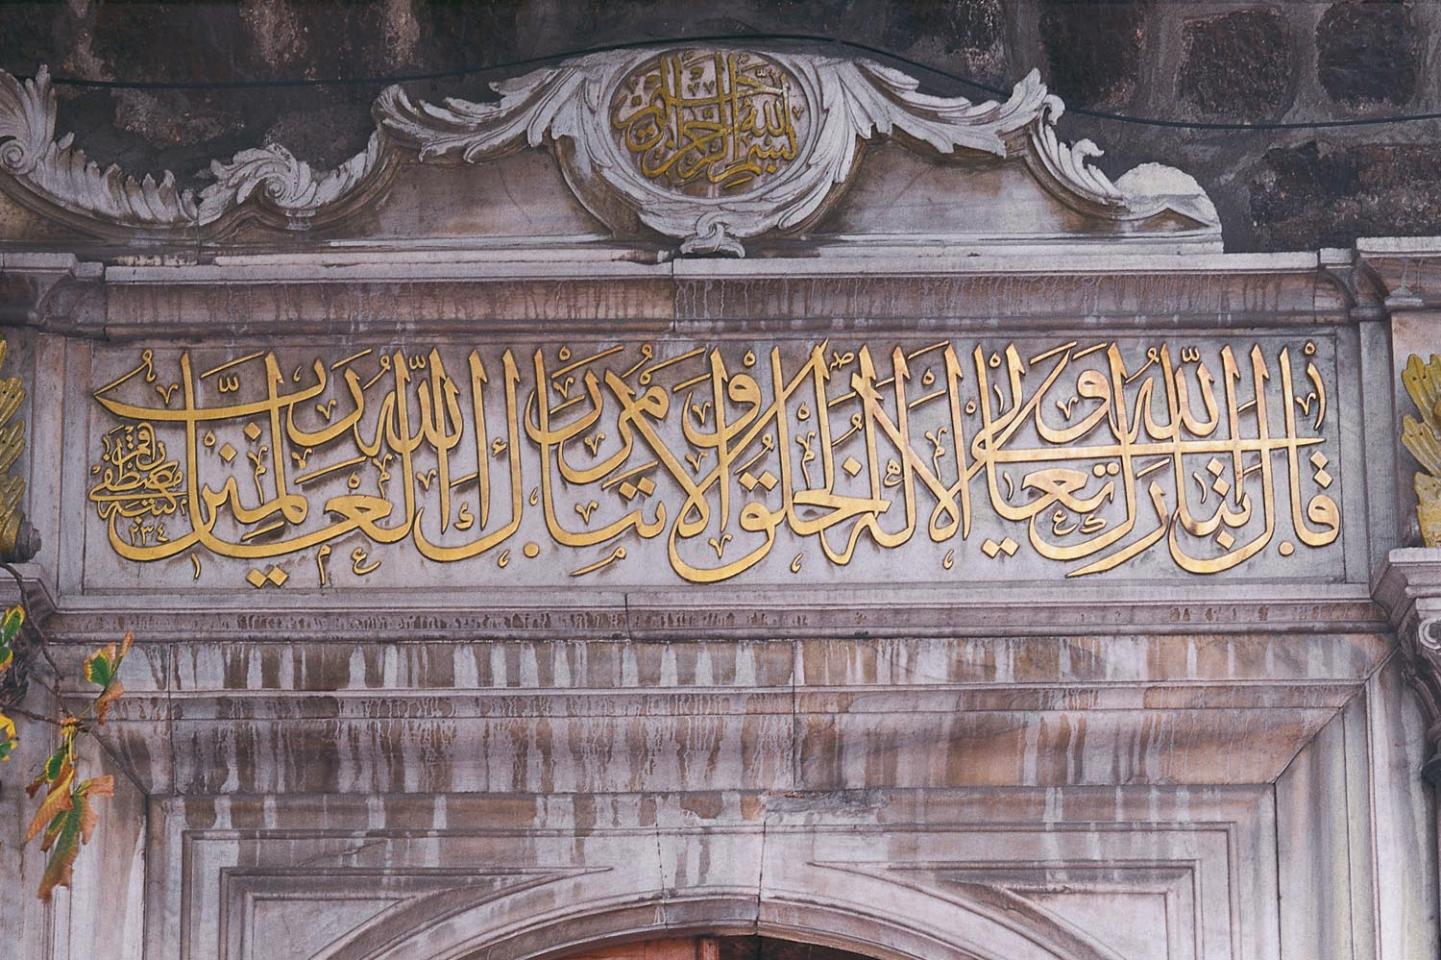 بسم الله الرحمن الرحيم
قال الله تبارك وتعالى ألا له الخلق والأمر تبارك الله رب العالمين
كتبه مصطفى راقم
٢٣٤